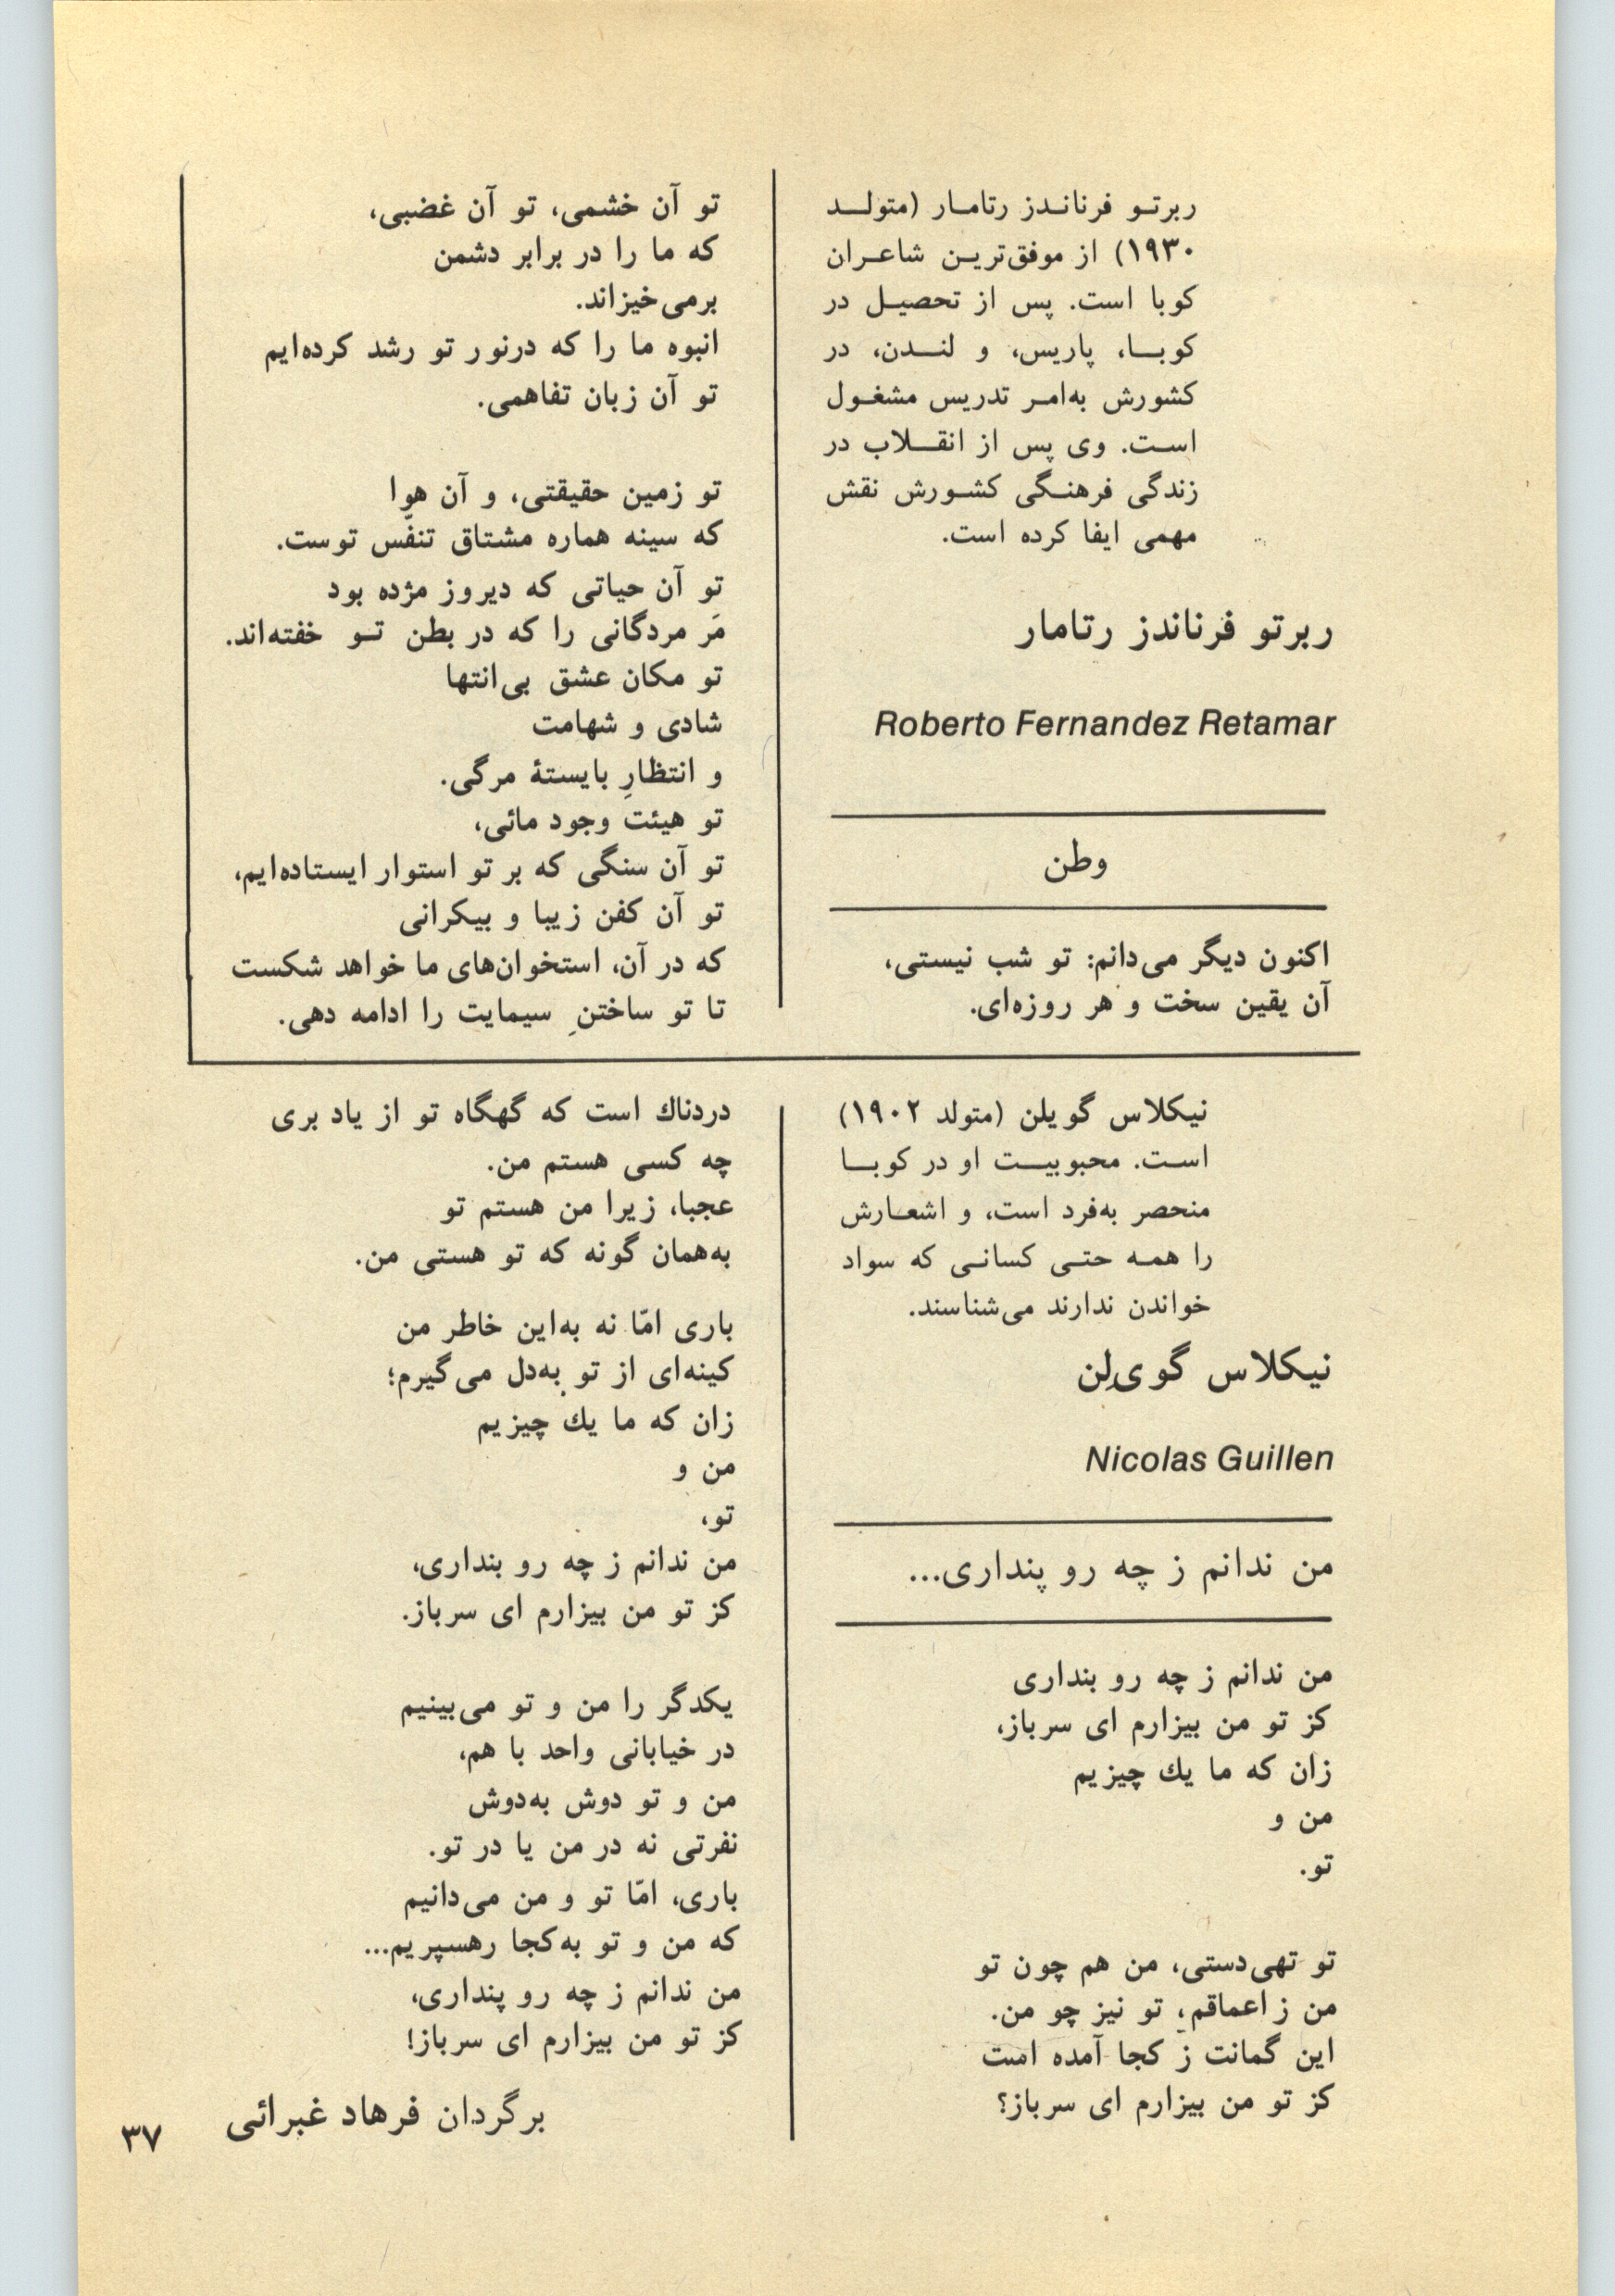 ربرتو فرناندز رتامار (متولد
۱۹۳۰) از موفق‌ترین شاعران
کوبا است. پس از تحصیل در
کوبا، پاریس، و لندن، در
کشورش به‌امر تدریس مشغول
است. وی پس از انقلاب در
زندگی فرهنگی کشورش نقش
مهمی ایفا کرده است.
ربرتو فرناندز رتامار
Roberto Fernandez Retamar
وطن
اکنون دیگر می‌دانم: تو شب نیستی،
آن یقین سخت و هر روزه‌ای.
تو آن خشمی، تو آن غضبی،
که ما را در برابر دشمن
برمی‌خیزاند.
انبوه ما را که درنور تو رشد کرده‌ایم
تو آن زبان تفاهمی.
تو زمین حقیقتی، و آن هوا
که سینه هماره مشتاق تنفّس توست.
تو آن حیاتی که دیروز مژده بود
مَر مردگانی را که در بطن تو خفته‌اند.
تو مکان عشق بی‌انتها
شادی و شهامت
و انتظارِ بایستهٔ مرگی.
تو هیئت وجود مائی،
تو آن سنگی که بر تو استوار ایستاده‌ایم،
تو آن کفن زیبا و بیکرانی
که در آن، استخوان‌های ما خواهد شکست
تا تو ساختنِ سیمایت را ادامه دهی.
نیکلاس گویلن (متولد ۱۹۰۲)
است. محبوبیت او در کوبا
منحصر به‌فرد است، و اشعارش
را همه حتی کسانی که سواد
خواندن ندارند می‌شناسند.
نیکلاس گوی‌لِن
Nicolas Guillen
من ندانم ز چه رو پنداری...
من ندانم ز چه رو بنداری
کز تو من بیزارم ای سرباز،
زان که ما یك چیزیم
من و
تو.
تو تهی‌دستی، من هم چون تو
من ز اعماقم، تو نیز چو من.
این گمانت ز کجا آمده است
کز تو من بیزارم ای سرباز؟
دردناك است که گهگاه تو از یاد بری
چه کسی هستم من.
عجبا، زیرا من هستم تو
به‌همان گونه که تو هستی من.
باری امّا نه به‌این خاطر من
کینه‌ای از تو به‌دل می‌گیرم؛
زان که ما یك چیزیم
من و
تو،
من ندانم ز چه رو بنداری،
کز تو من بیزارم ای سرباز.
یکدگر را من و تو می‌بینیم
در خیابانی واحد با هم،
من و تو دوش به‌دوش
نفرتی نه در من یا در تو.
باری، امّا تو و من می‌دانیم
که من و تو به‌کجا رهسپریم...
من ندانم ز چه رو پنداری،
کز تو من بیزارم ای سرباز!
برگردان فرهاد غبرائی
۳۷